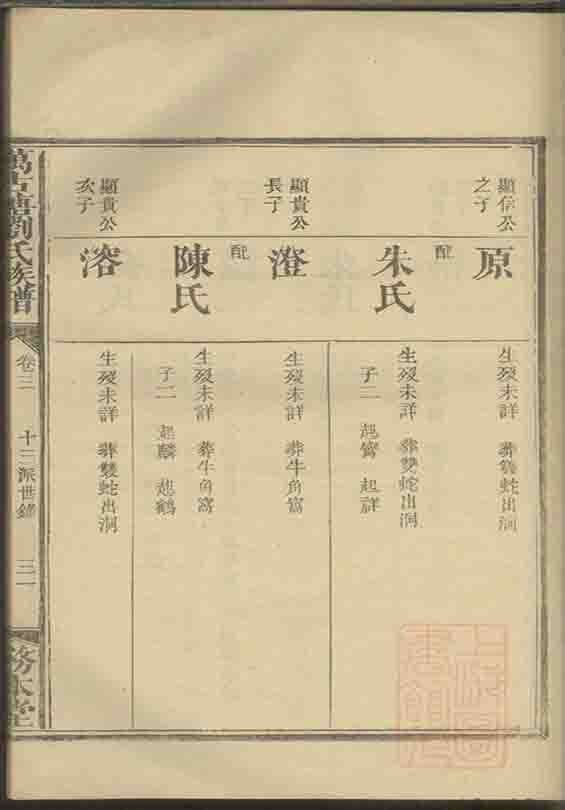 顯信公
之子
原
生歿未詳 葬雙蛇出洞
配
朱氏
生歿未詳 葬雙蛇出洞
子二 起賓 起祥
顯貴公
長子
澄
生歿未詳 葬牛角窩
配
陳氏
生歿未詳 葬牛角窩
子二 起麟 起鶴
顯貴公
次子
溶
生歿未詳 葬雙蛇出洞
劉氏族譜
卷三
十三派世錄
務本堂
上海圖
書館藏